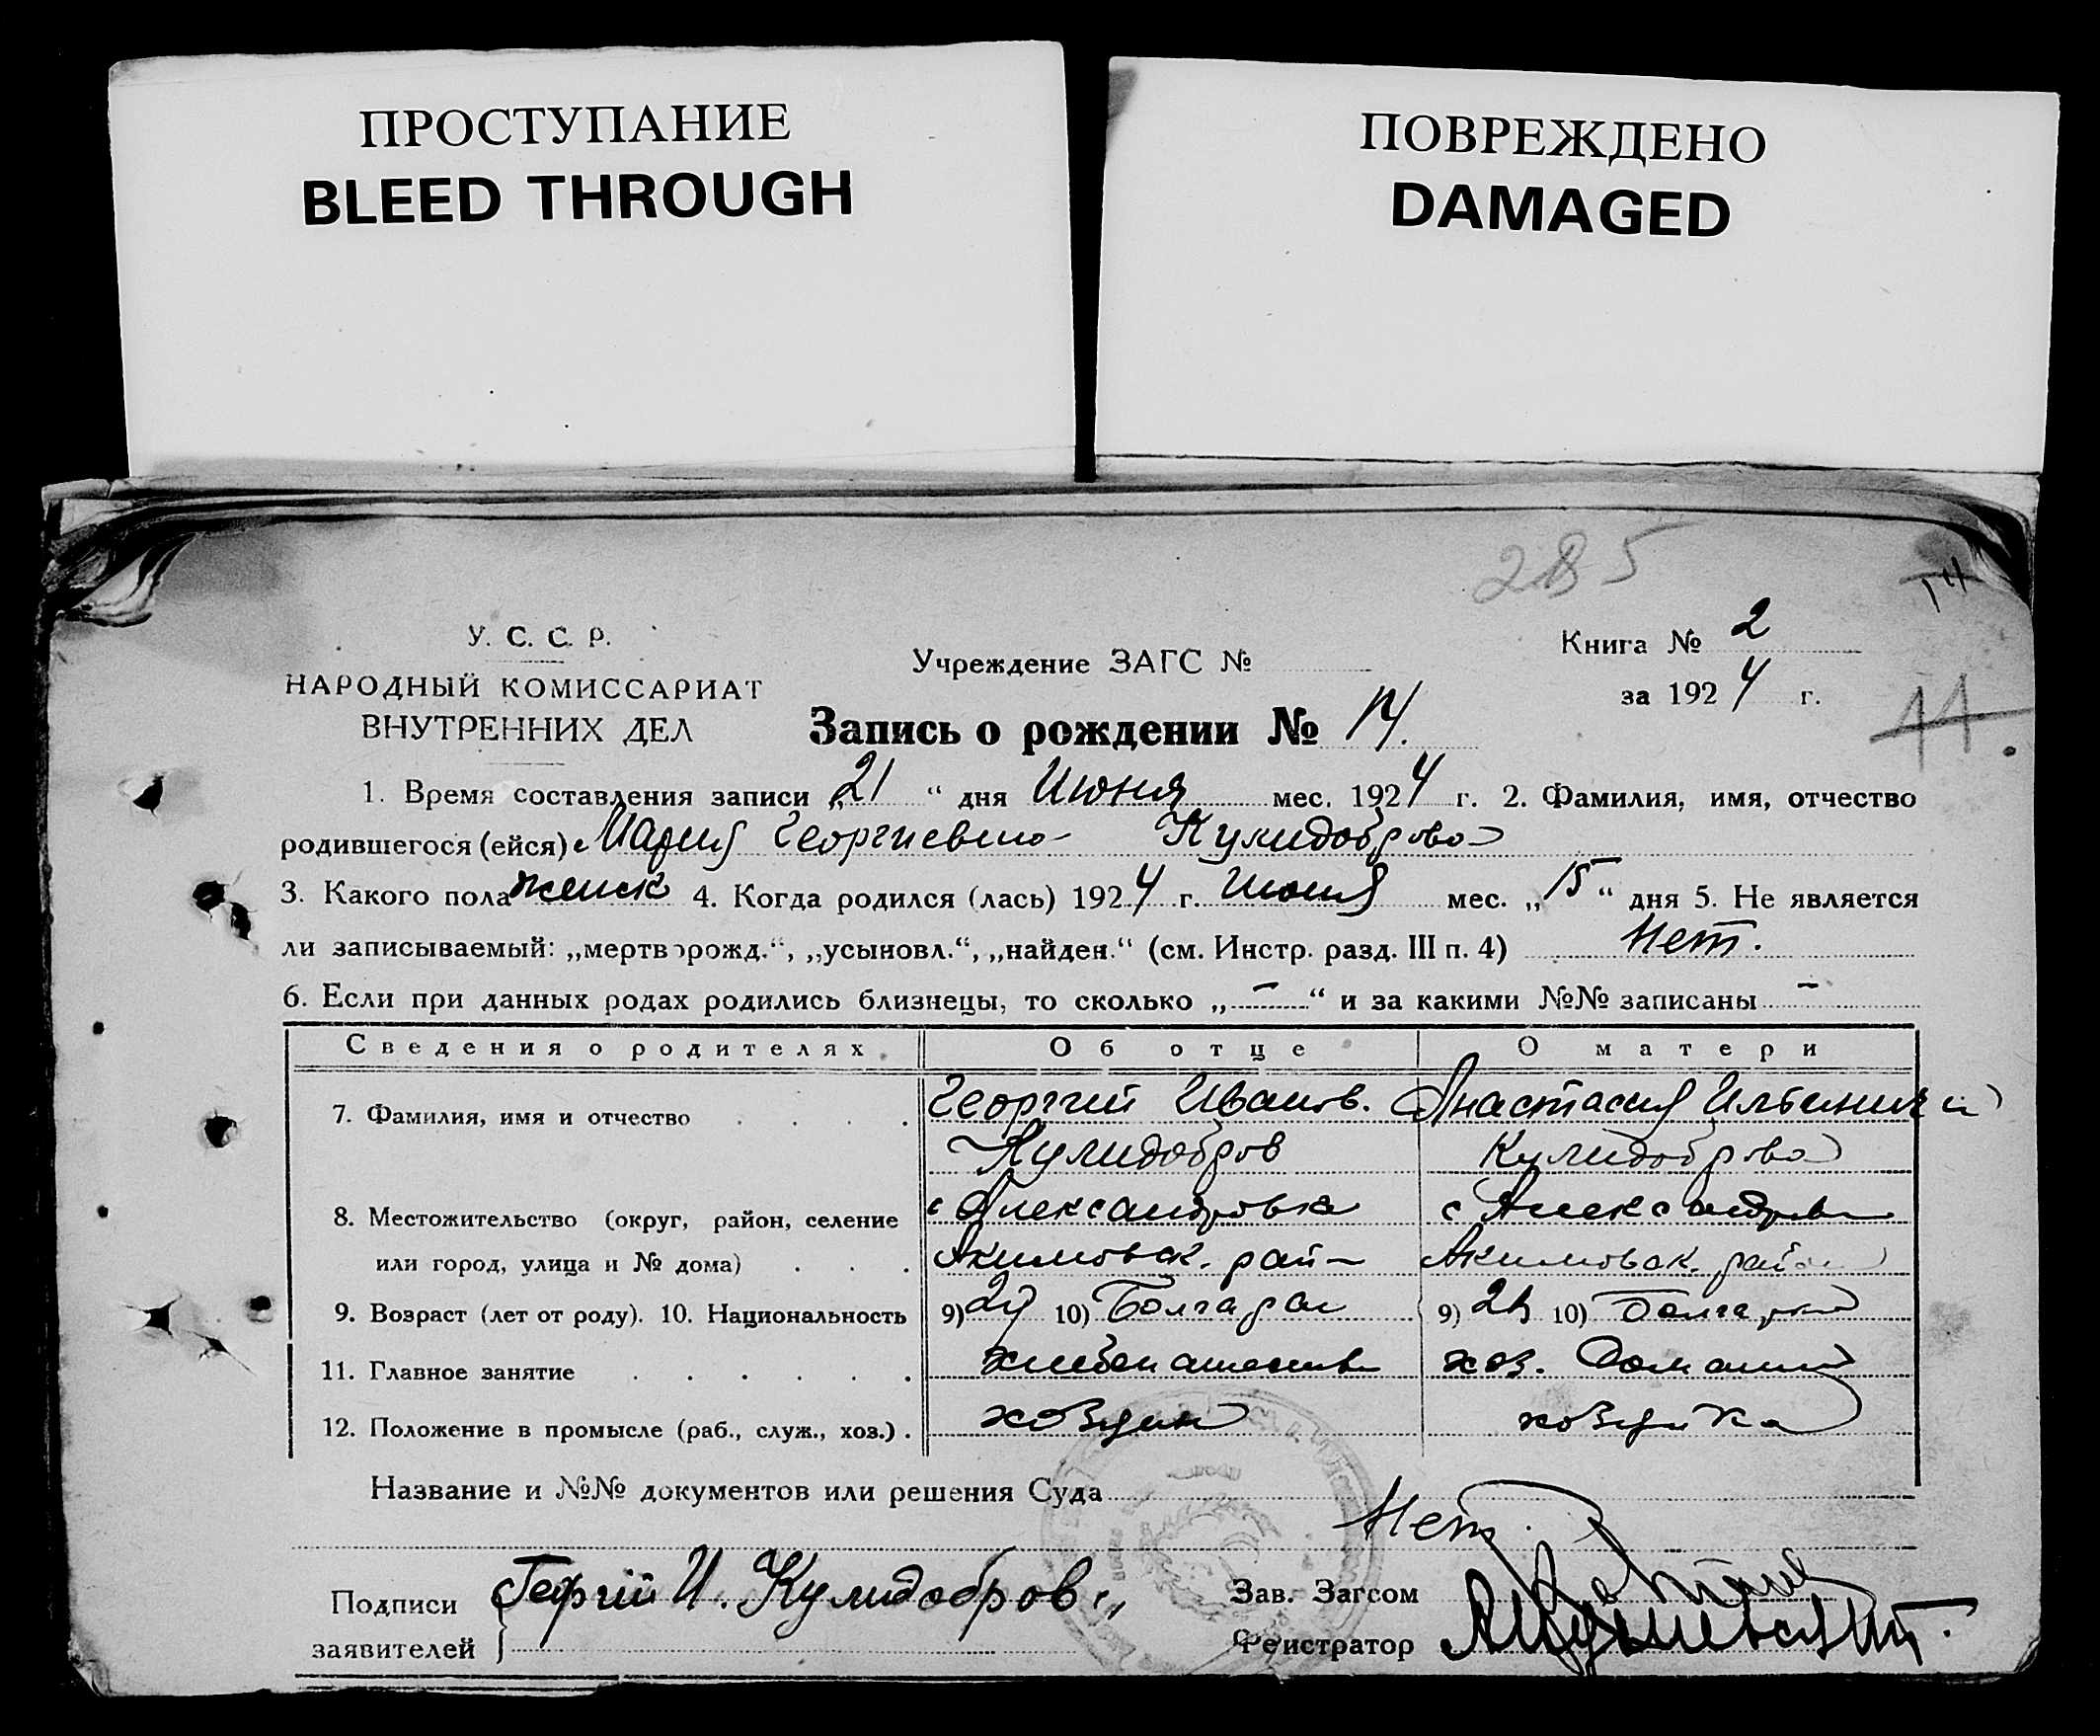 ПРОСТУПАНИЕ
BLEED THROUGH
ПОВРЕЖДЕНО
DAMAGED
285
14
У. С. С. Р.
НАРОДНЫЙ КОМИССАРИАТ
ВНУТРЕННИХ ДЕЛ
Учреждение ЗАГС №
Книга № 2
за 1924 г.
11.
Запись о рождении № 14.
1. Время составления записи „21“ дня Июня мес. 1924 г. 2. Фамилия, имя, отчество
родившегося (ейся) Мария Георгиевна Кулидоброва
3. Какого пола женск 4. Когда родился (лась) 1924 г. Июня мес. „15“ дня 5. Не является
ли записываемый: „мертворожд.“, „усыновл.“, „найден.“ (см. Инстр. разд. III п. 4) Нет.
6. Если при данных родах родились близнецы, то сколько „—“ и за какими №№ записаны —
Сведения о родителях Об отце О матери
7. Фамилия, имя и отчество Георгий Иванов. Анастасия Ильинич
Кулидобров Кулидоброва
8. Местожительство (округ, район, селение с Александровка с Александровка
или город, улица и № дома) Акимовск. район Акимовск. район
9. Возраст (лет от роду). 10. Национальность 9) 10) Болгарин 9) 10) Болгарка
11. Главное занятие хлебопашество хоз. Домашн
12. Положение в промысле (раб., служ., хоз.) хозяин хозяйка
Название и №№ документов или решения Суда
Нет
Подписи Георгий И. Кулидобров Зав. Загсом
заявителей Регистратор